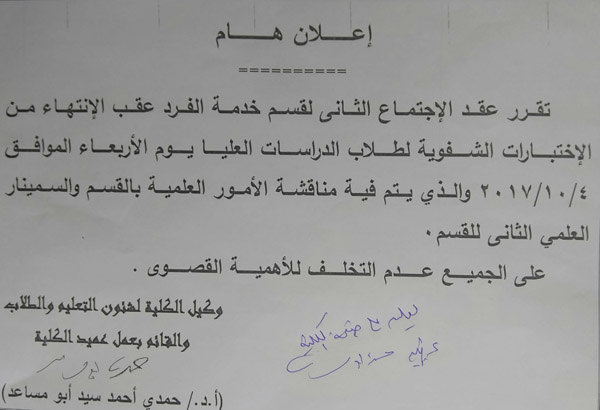 إعلان هام
==========
تقرر عقد الإجتماع الثانى لقسم خدمة الفرد عقب الإنتهاء من
الإختبارات الشفوية لطلاب الدراسات العليا يوم الأربعاء الموافق
٢٠١٧/١٠/٤ والذي يتم فية مناقشة الأمور العلمية بالقسم والسمينار
العلمي الثانى للقسم٠
على الجميع عدم التخلف للأهمية القصوى .
وكيل الكلية لشئون التعليم والطلاب
والقائم بعمل عميد الكلية
(أ.د./ حمدي أحمد سيد أبو مساعد)